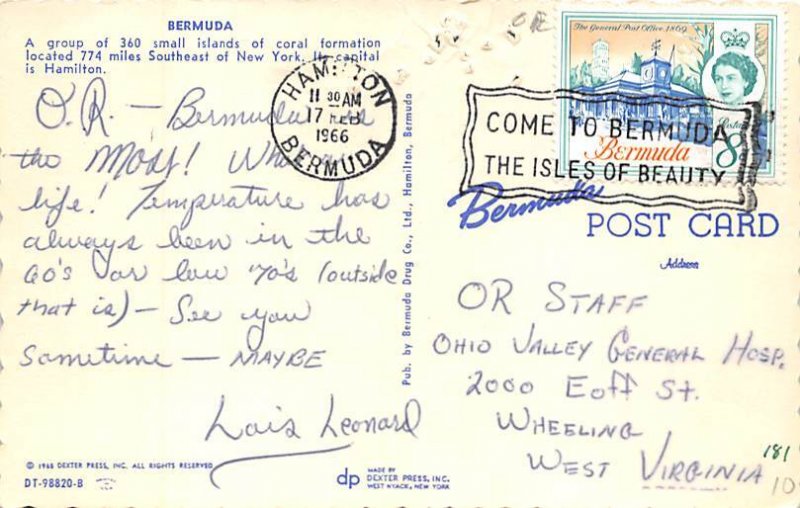 BERMUDA
A group of 360 small islands of coral formation
located 774 miles Southeast of New York. Its capital
is Hamilton.
O.R. — Bermuda
the Most! What
life! Temperature has
always been in the
60's or low 70's (outside
that is) — See you
Sometime — MAYBE
Lois Leonard
© 1965 DEXTER PRESS, INC. ALL RIGHTS RESERVED
DT-98820-B
Pub. by Bermuda Drug Co., Ltd., Hamilton, Bermuda
dp
MADE BY
DEXTER PRESS, INC.
WEST NYACK, NEW YORK
HAMILTON
11 30 AM
17 FEB
1966
BERMUDA
OR
The General Post Office 1869
Postage
8
Bermuda
COME TO BERMUDA
THE ISLES OF BEAUTY
Bermuda
POST CARD
Address
OR STAFF
OHIO VALLEY GENERAL HOSP.
2000 Eoff St.
WHEELING
WEST VIRGINIA
181
10